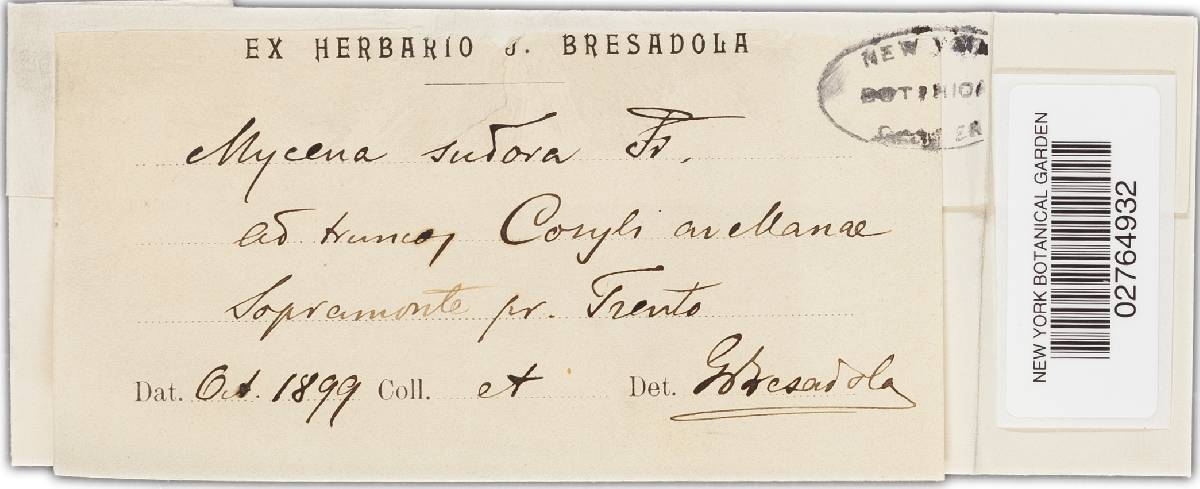 EX HERBARIO J. BRESADOLA
Mycena sudora Fr.
ad truncos Coryli avellanae
Sopramonte pr. Trento
Dat. Oct. 1899 Coll. et Det. GBresadola
NEW
BOTANICA
NEW YORK BOTANICAL GARDEN
02764932